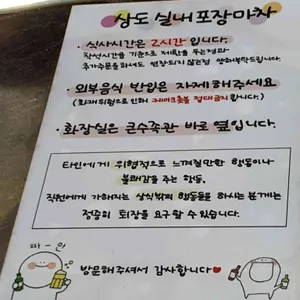 상도 실내포장마차
· 식사시간은 2시간 입니다.
착석시간을 기준으로 제한을 두는점과
추가주문을 하셔도 연장되지 않는점 양해부탁드립니다.
· 외부음식 반입은 자제해주세요
(화재위험으로 인해 케이크촛불 절대금지합니다.)
· 화장실은 큰수족관 바로 옆입니다.
타인에게 위협적으로 느껴질만한 행동이나
불쾌감을 주는 행동,
직원에게 가해지는 상식밖의 행동들을 하시는 분께는
정중히 퇴장을 요구할 수 있습니다.
짜-안
방문해주셔서 감사합니다